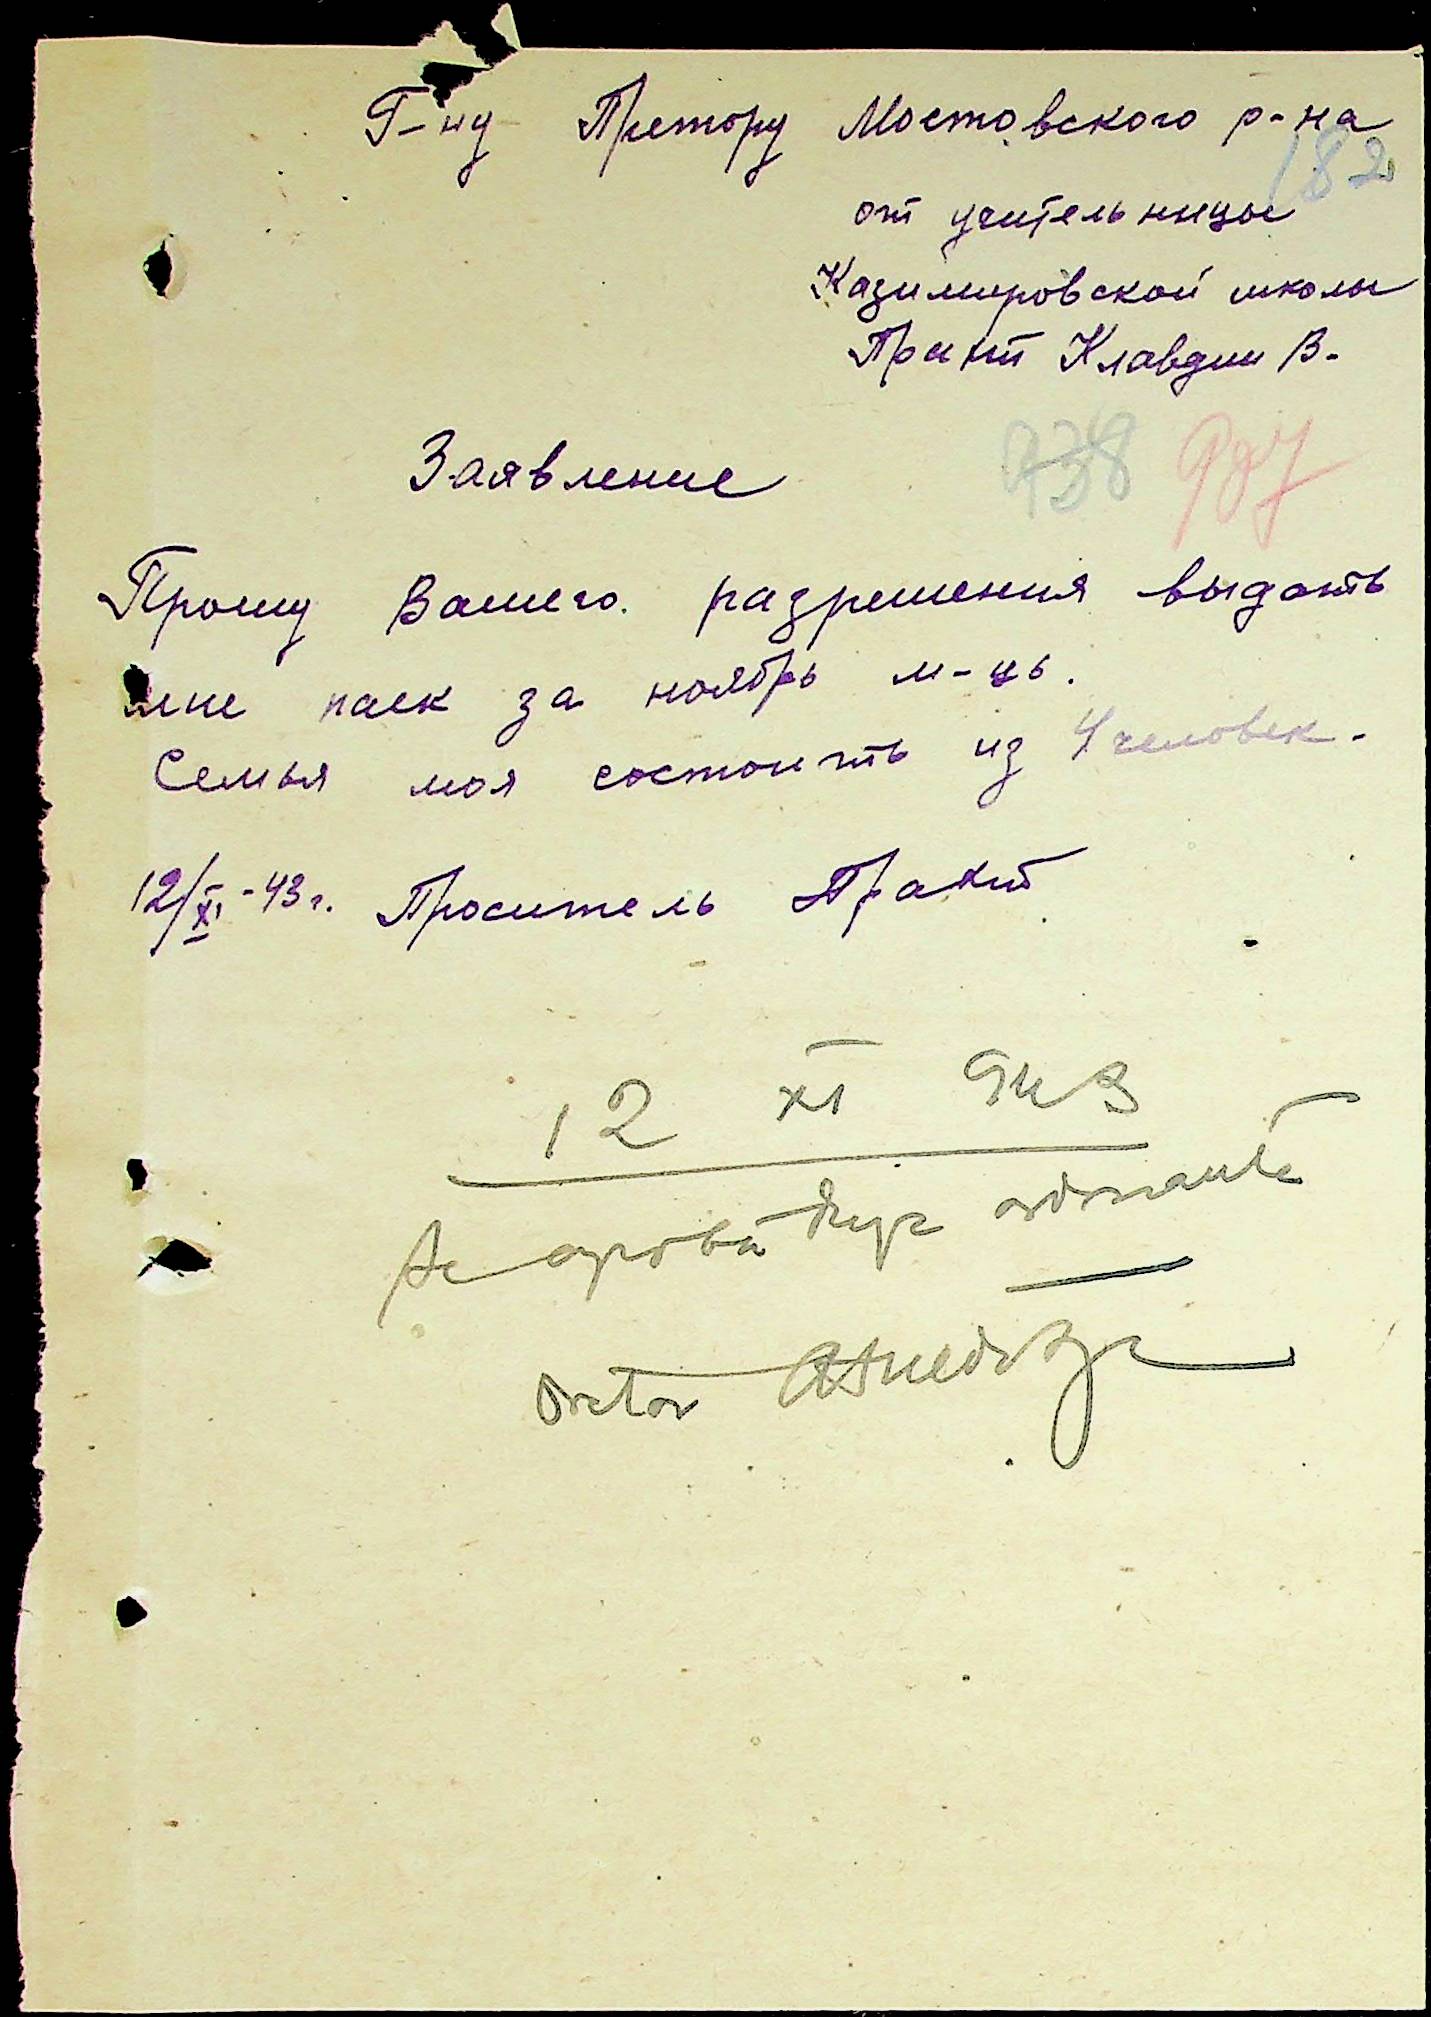 Г-ну Претору Мостовского р-на
182
от учительницы
Казимировской школы
Клавдии В.
938
Заявление
Прошу Вашего разрешения выдать
мне паек за ноябрь м-ць.
Семья моя состоить из 4 человек.
12/XI-43 г. Проситель
12 XI 943
Se aprobă după ordonanță